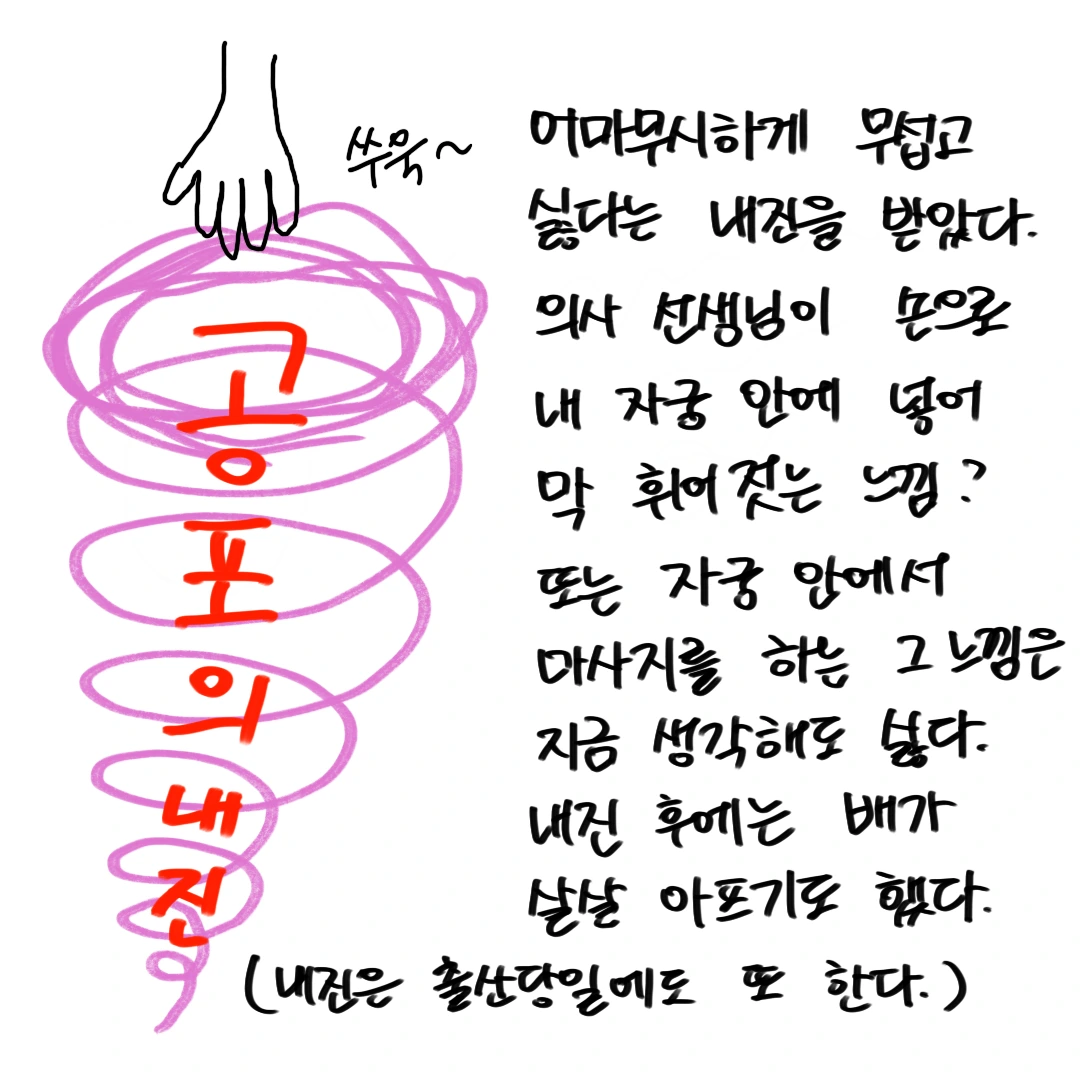 쑤욱~
공포의내진
어마무시하게 무섭고
싫다는 내진을 받았다.
의사 선생님이 손으로
내 자궁 안에 넣어
막 휘어젓는 느낌?
또는 자궁 안에서
마사지를 하는 그 느낌은
지금 생각해도 싫다.
내진 후에는 배가
살살 아프기도 했다.
(내진은 출산당일에도 또 한다.)